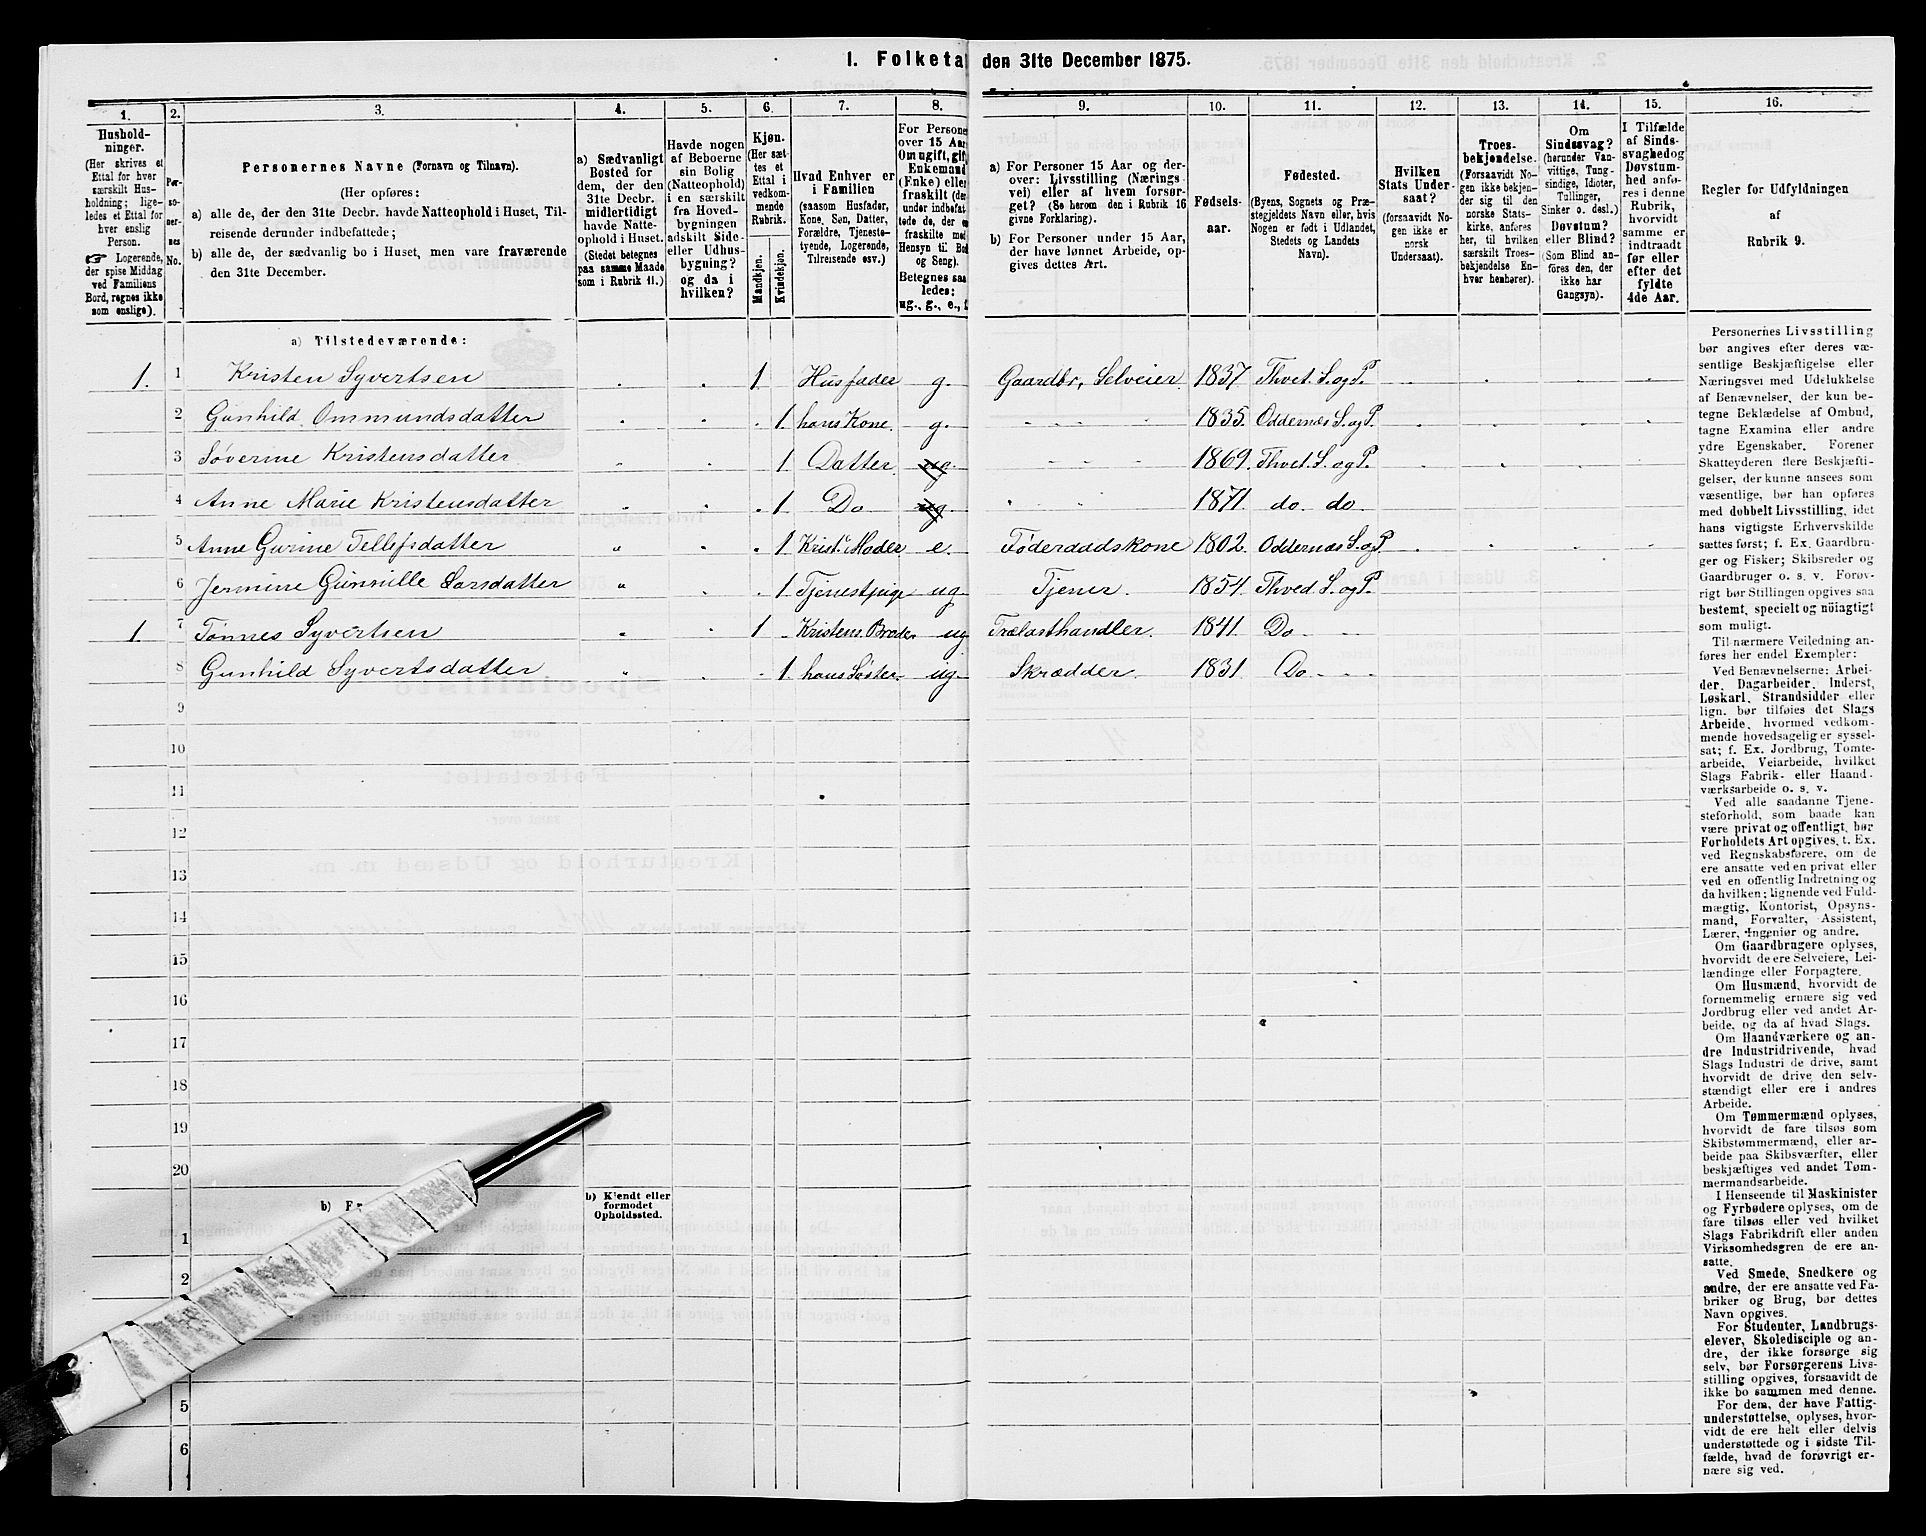 1. Folketa den 31te December 1875.
1. 2. 3. 4. 5. 6. 7. 8. 9. 10. 11. 12. 13. 14. 15. 16.
Hushold-
ninger.
(Her skrives et
Ettal for hver
særskilt Hus-
holdning; lige-
ledes et Ettal for
hver enslig
Person.
☞ Logerende,
der spise Middag
ved Familiens
Bord, regnes ikke
som enslige).
Per-
so-
ner-
nes
No.
Personernes Navne (Fornavn og Tilnavn).
(Her opføres:
a) alle de, der den 31te Decbr. havde Natteophold i Huset, Til-
reisende derunder indbefattede;
b) alle de, der sædvanlig bo i Huset, men vare fraværende
den 31te December.
a) Sædvanligt
Bosted for
dem, der den
31te Decbr.
midlertidigt
havde Natte-
ophold i Huset.
(Stedet betegnes
paa samme Maade
som i Rubrik 11.)
Havde nogen
af Beboerne
sin Bolig
(Natteophold)
i en særskilt
fra Hoved-
bygningen
adskilt Side-
eller Udhus-
bygning?
og da i
hvilken?
Kjøn.
(Her sæt-
tes et
Ettal i
vedkom-
mende
Rubrik.
Mandkjøn.
Kvindekjøn.
Hvad Enhver er
i Familien
(saasom Husfader,
Kone, Søn, Datter,
Forældre, Tjeneste-
tyende, Logerende,
Tilreisende osv.)
For Persone
over 15 Aa
Om ugift, gif
Enkemand
(Enke) elle
fraskilt (de
under indbefat
tede de, der
fraskilte med
Hensyn til Bo
og Seng).
Betegnes saa
ledes;
ug., g., e., f
a) For Personer 15 Aar og der-
over: Livsstilling (Nærings-
vei) eller af hvem forsør-
get? (Se herom den i Rubrik 16
givne Forklaring).
b) For Personer under 15 Aar,
der have lønnet Arbeide, op-
gives dettes Art.
Fødsels-
aar.
Fødested.
(Byens, Sognets og Præ-
stegjeldets Navn eller, hvis
Nogen er født i Udlandet,
Stedets og Landets
Navn).
Hvilken
Stats Under-
saat?
(forsaavidt No-
gen ikke er
norsk
Undersaat).
Troes-
bekjendelse.
(Forsaavidt No-
gen ikke bekjen-
der sig til den
norske Stats-
kirke, anføres
her, til hvilken
særskilt Troes-
bekjendelse En-
hver henhører).
Om
Sindssvag?
(herunder Van-
vittige, Tung-
sindige, Idioter,
Tullinger,
Sinker o. desl.)
Døvstum?
eller Blind?
(Som Blind an-
føres den, der
ikke har
Gangsyn).
I Tilfælde
af Sinds-
svaghed og
Døvstum-
hed anfø-
res i denne
Rubrik,
hvorvidt
samme er
indtraadt
før eller
efter det
fyldte
4de Aar.
Regler for Udfyldningen
af
Rubrik 9.
a) Tilstedeværende:
1. 1 Kristen Syvertsen 1 Husfader g. Gaardbr, Selveier 1837 Thvet. S. og P.
2 Gunhild Ommundsdatter 1. hans Kone. g. 1835. Oddernæs S. og P.
3 Søverine Kristensdatter 1 Datter. ug. 1869. Thvet. S. og P.
4 Anne Marie Kristensdatter 1 Do ug. 1871. do. do.
5 Anne Gurine Tellefsdatter 1 Krist. Moder e. Føderaadskone 1802. Oddernæs S. og P.
6 Jermine Gunnille Larsdatter 1. Tjenestpige ug Tjener. 1854. Thved S. og P.
1. 7 Tønnes Syvertsen 1 Kristens Broder ug Trælasthandler. 1841. Do
8 Gunhild Syvertsdatter 1 hans Søster. ug. Skrædder. 1831. Do
9
10
11
12
13
14
15
16
17
18
19
20
b) Fr
b) Kjendt eller
formodet
Opholdssted.
1
2
5
6
Personernes Livsstilling
bør angives efter deres væ-
sentlige Beskjæftigelse eller
Næringsvei med Udelukkelse
af Benævnelser, der kun be-
tegne Beklædelse af Ombud,
tagne Examina eller andre
ydre Egenskaber. Forener
Skatteyderen flere Beskjæfti-
gelser, der kunne ansees som
væsentlige, bør han opføres
med dobbelt Livsstilling, idet
hans vigtigste Erhvervskilde
sættes først; f. Ex. Gaardbru-
ger og Fisker; Skibsreder og
Gaardbruger o. s. v. Forøv-
rigt bør Stillingen opgives saa
bestemt, specielt og nöiagtigt
som muligt.
Til nærmere Veiledning an-
føres her endel Exempler:
Ved Benævnelserne: Arbei-
der, Dagarbeider, Inderst,
Løskarl, Strandsidder eller
lign. bør tilføies det Slags
Arbeide, hvormed vedkom-
mende hovedsagelig er syssel-
sat; f. Ex. Jordbrug, Tomte-
arbeide, Veiarbeide, hvilket
Slags Fabrik- eller Haand-
værksarbeide o. s. v.
Ved alle saadanne Tjene-
steforhold, som baade kan
være privat og offentligt, bør
Forholdets Art opgives, t. Ex.
ved Regnskabsførere, om de
ere ansatte ved en privat eller
ved en offentlig Indretning og
da hvilken; lignende ved Fuld-
mægtig, Kontorist, Opsyns-
mand, Forvalter, Assistent,
Lærer, Ingeniør og andre.
Om Gaardbrugere oplyses,
hvorvidt de ere Selveiere, Lei-
lændinge eller Forpagtere.
Om Husmænd, hvorvidt de
fornemmelig ernære sig ved
Jordbrug eller ved andet Ar-
beide, og da af hvad Slags.
Om Haandværkere og an-
dre Industridrivende, hvad
Slags Industri de drive, samt
hvorvidt de drive den selv-
stændigt eller ere i andres
Arbeide.
Om Tømmermænd oplyses,
hvorvidt de fare tilsøs som
Skibstømmermænd, eller ar-
beide paa Skibsværfter, eller
beskjæftiges ved andet Tøm-
mermandsarbeide.
I Henseende til Maskinister
og Fyrbødere oplyses, om de
fare tilsøs eller ved hvilket
Slags Fabrikdrift eller anden
Virksomhedsgren de ere an-
satte.
Ved Smede, Snedkere og
andre, der ere ansatte ved Fa-
briker og Brug, bør dettes
Navn opgives.
For Studenter, Landbrugs-
elever, Skoledisciple og an-
dre, der ikke forsørge sig
selv, bør Forsørgerens Livs-
stilling opgives, forsaavidt de
ikke bo sammen med denne.
For dem, der have Fattig-
understøttelse, oplyses, hvor-
vidt de ere helt eller delvis
understøttede og i sidste Til-
fælde, hvad de forøvrigt er-
nære sig ved.